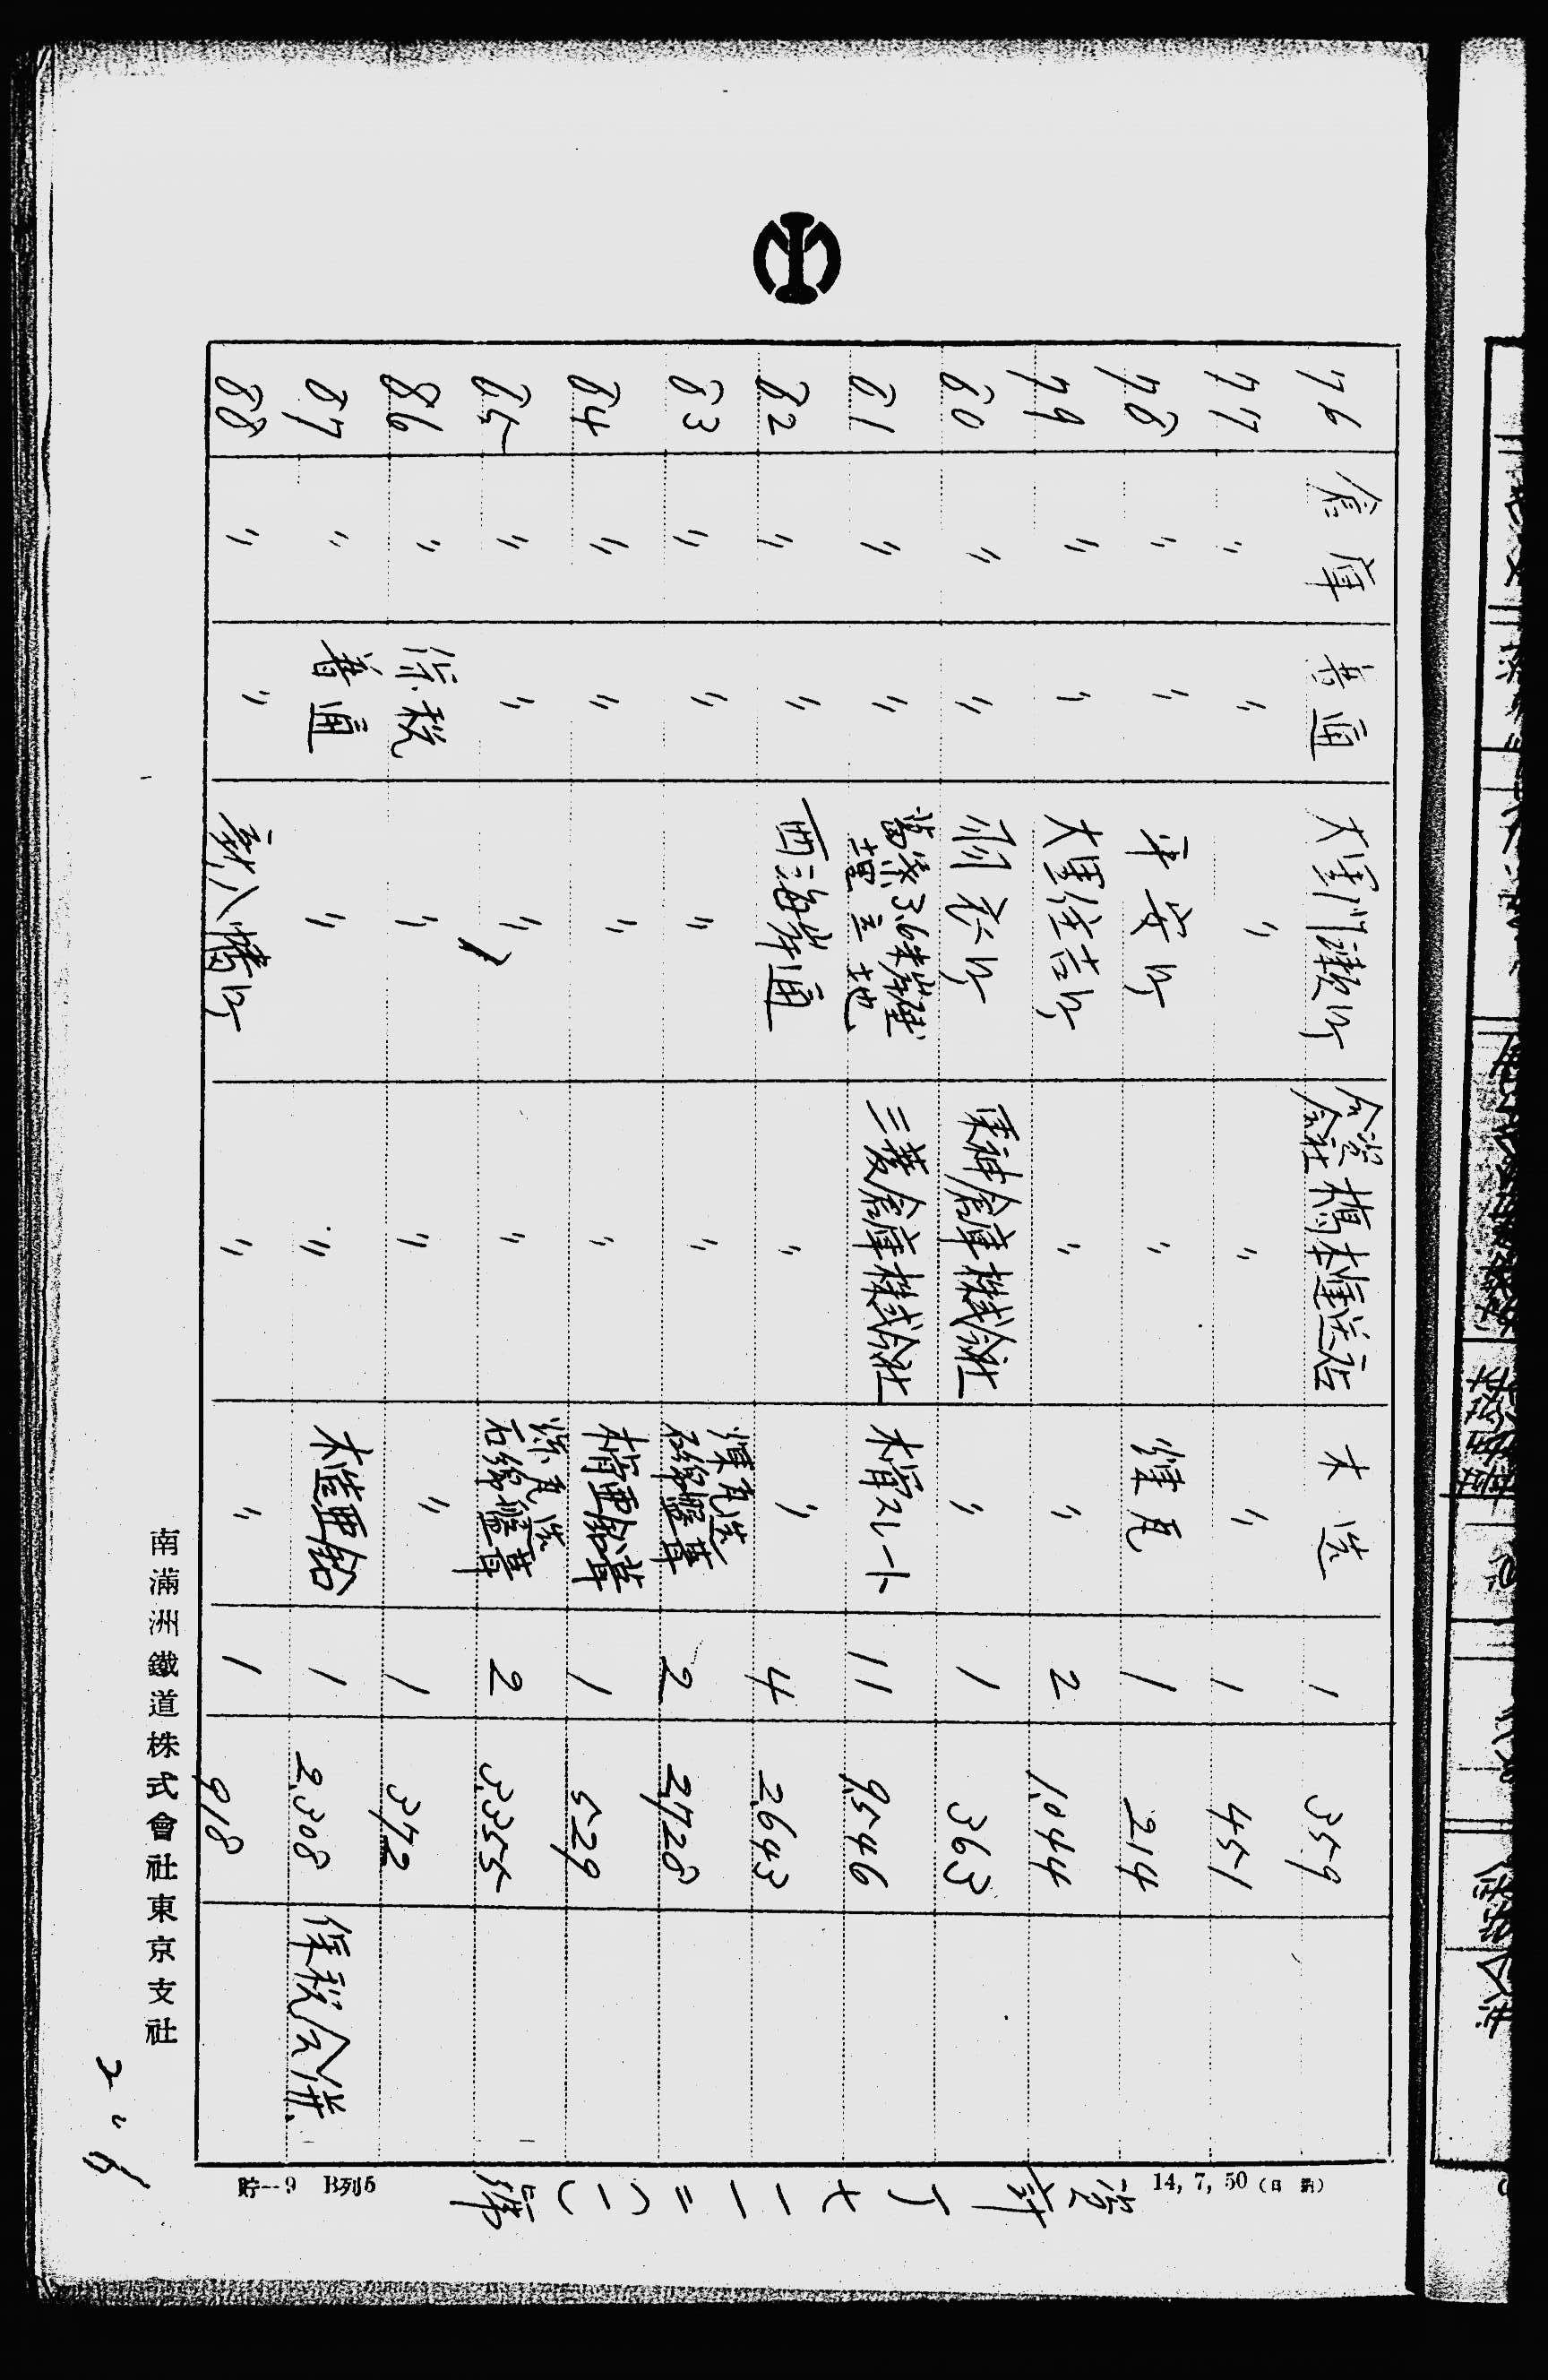 76 倉庫 普通 大里門鉄町 合資会社 橋本運送店 木造 1 359
77 〃 〃 〃 〃 〃 1 451
78 〃 〃 平安町 〃 煉瓦 1 214
79 〃 〃 大里住吉町 〃 〃 2 1,044
80 〃 〃 羽衣町 東神倉庫株式会社 〃 1 363
81 〃 〃 埋立地 三菱倉庫株式会社 木骨スレート 11 9,546
82 〃 〃 西海岸通 〃 〃 4 2,643
83 〃 〃 〃 〃 煉瓦造石綿盤葺 2 2,728
84 〃 〃 〃 〃 木骨亜鉛葺 1 529
85 〃 〃 〃 〃 煉瓦造石綿盤葺 2 3,355
86 〃 保税 〃 〃 〃 1 372
87 〃 普通 〃 〃 木造亜鉛 1 2,308 保税合併
88 〃 〃 八幡町 〃 〃 1 918
南滿洲鐵道株式會社東京支社
14, 7, 50
貯--9 B列5